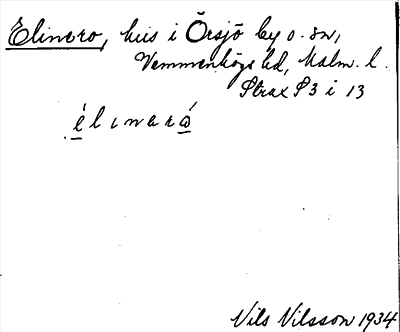 Elinero, hus i Örsjö by o. sn,
Vemmenhögs hd, Malm. l.
Strax P3 i 13
élınərɷ́
Nils Nilsson 1934